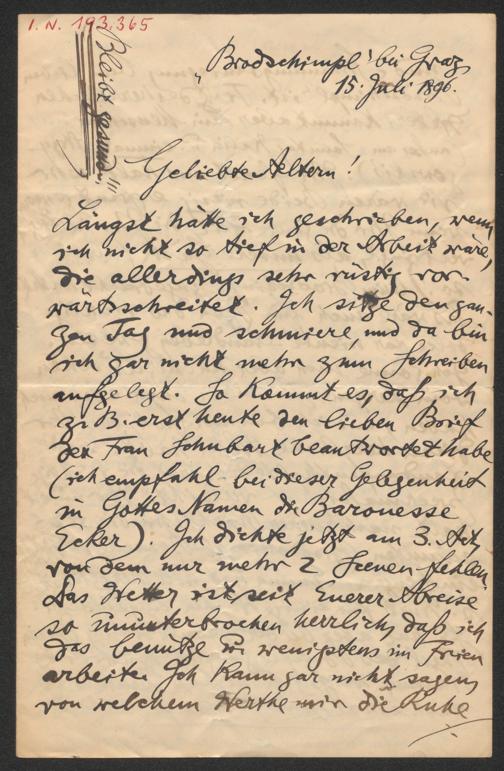 I. N. 193.365
Bleibt gesund!!!
"Brodschimpl" bei Graz
15. Juli 1896.
Geliebte Aeltern!
Längst hätte ich geschrieben, wenn
ich nicht so tief in der Arbeit wäre,
die allerdings sehr rüstig vor-
wärtsschreitet. Ich sitze den gan-
zen Tag und schmiere, und da bin
ich gar nicht mehr zum Schreiben
aufgelegt. So kommt es, daß ich
z. B. erst heute den lieben Brief
der Frau Schubart beantwortet habe
(ich empfahl bei dieser Gelegenheit
in Gottes Namen die Baronesse
Ecker). Ich dichte jetzt am 3. Act,
von dem nur mehr 2 Scenen fehlen.
Das Wetter ist seit Euerer Abreise
so ununterbrochen herrlich, daß ich
das benütze u. wenigstens im Freien
arbeite. Ich kann gar nicht sagen,
von welchem Werthe mir die Ruhe